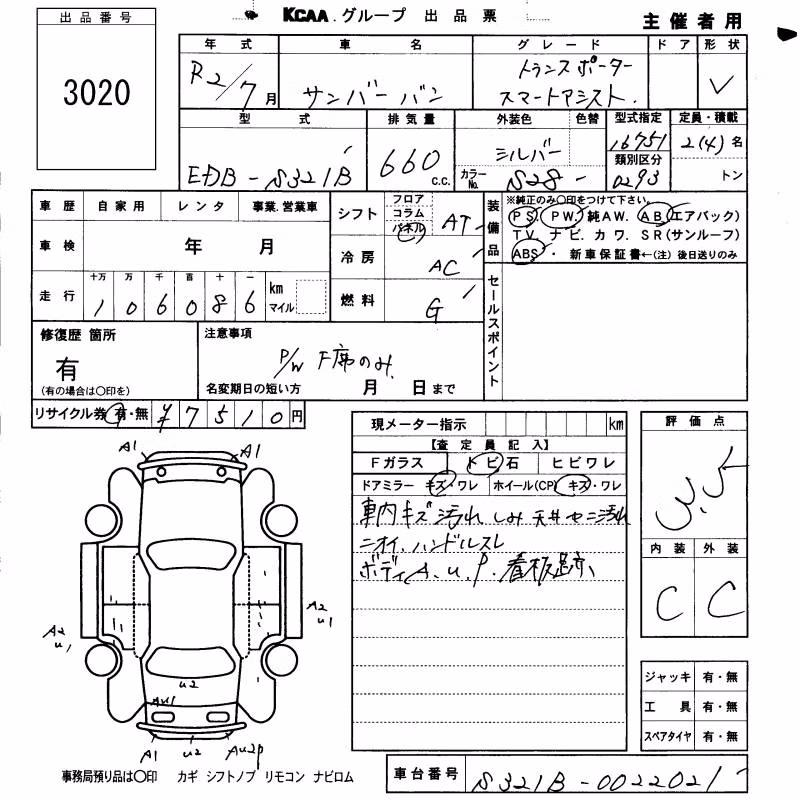 出品番号
3020
KCAA.グループ 出品票
主催者用
年式 車名 グレード ドア 形状
R2/7月 サンバーバン トランスポーター スマートアシスト.
型式 排気量 外装色 色替 型式指定 定員・積載
EBD-S321B 660 c.c. シルバー 16751 2(4)名
カラーNo. S28 - 類別区分 0293 トン
車歴 自家用 レンタ 事業.営業車
シフト フロア コラム パネル AT
装備品 ※純正のみ〇印をつけて下さい。
PS. PW. 純AW. AB(エアバック)
TV. ナビ. カワ. SR(サンルーフ)
ABS・ 新車保証書←(注)後日送りのみ
車検 年 月
冷房 AC
走行 十万 万 千 百 十 一 km マイル
106086
燃料 G
セールスポイント
修復歴 箇所
有
(有の場合は〇印を)
注意事項
P/W F席のみ.
名変期日の短い方 月 日まで
リサイクル券 有・無 ¥7510円
現メーター指示 km
【査定員記入】
Fガラス トビ石 ヒビワレ
ドアミラー キズ・ワレ ホイール(CP) キズ・ワレ
車内キズ汚れ しみ 天井セ二汚れ
ニオイ、ハンドルスレ
ボディA、U、P. 看板跡、
評価点
3.5
内装 外装
C C
ジャッキ 有・無
工具 有・無
スペアタイヤ 有・無
A1 A1
A2 U1
A2 U1
U2
AU1
A1 U2 AU2P
事務局預り品は〇印 カギ シフトノブ リモコン ナビロム
車台番号 S321B-0022021